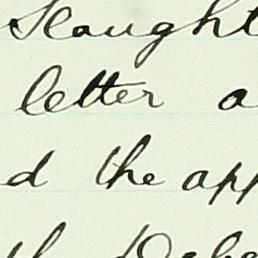 Slaught
letter a
d the app